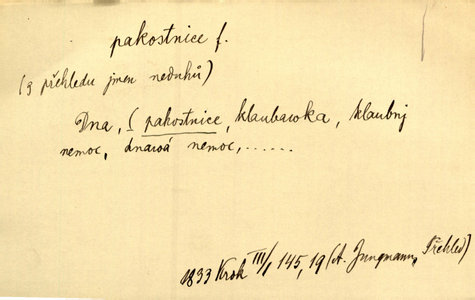 pakostnice f.
(z přehledu jmen neduhů)
Dna, [pakostnice, klaubawka, klaubnj
nemoc, dnawá nemoc, ......
1833 Krok III/1 145, 19 (A. Jungmann, Přehled)